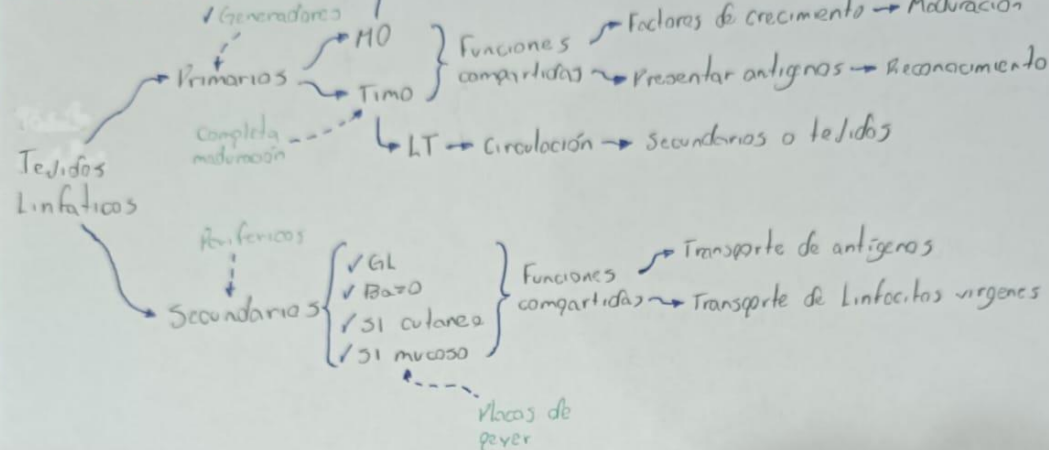 ✓ Generadores
MO
Primarios
Timo
Funciones
compartidas
Factores de crecimiento → Maduración
Presentar antignos → Reconocimiento
Completa
maduración
LT → Circulación → Secundarios o tejidos
Tejidos
Linfáticos
Perifericos
Secundarios
✓ GL
✓ Bazo
✓ SI cutaneo
✓ SI mucoso
Funciones
compartidas
Transporte de antígenos
Transporte de Linfocitos virgenes
Placas de
peyer